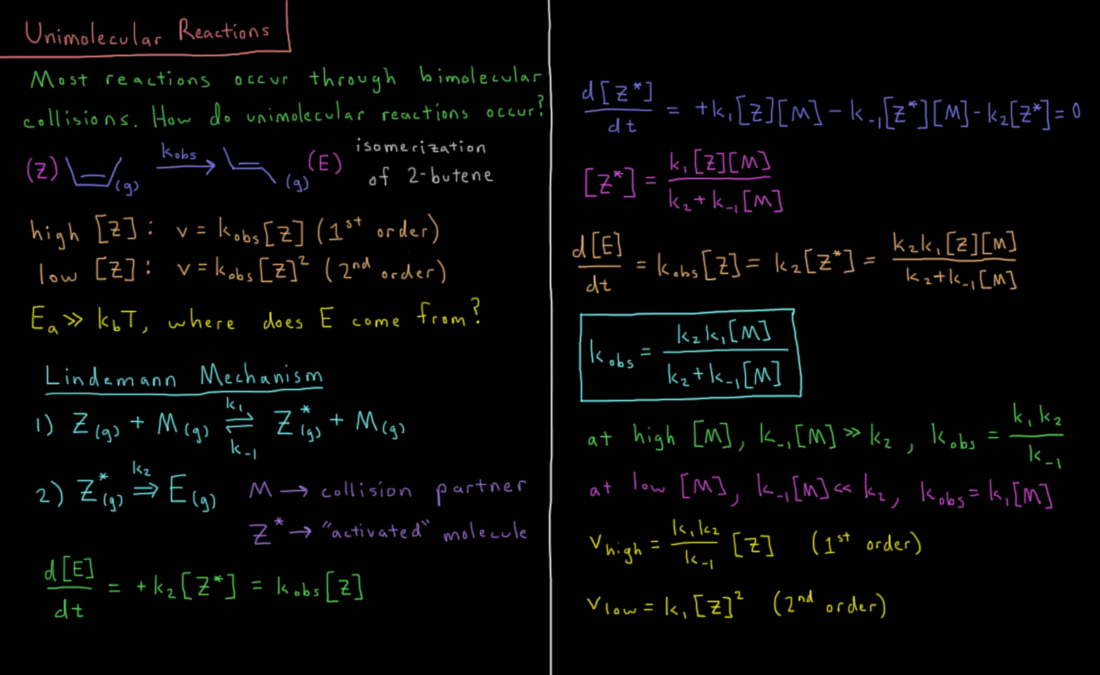 Unimolecular Reactions
Most reactions occur through bimolecular
collisions. How do unimolecular reactions occur?
(Z) (g) k_obs → (g) (E) isomerization
of 2-butene
high [Z]: v = k_obs[Z] (1^st order)
low [Z]: v = k_obs[Z]² (2^nd order)
E_a >> k_bT, where does E come from?
Lindemann Mechanism
1) Z_(g) + M_(g) ⇌ Z*_(g) + M_(g) k_1 k_-1
2) Z*_(g) ⇒ E_(g) k_2
M → collision partner
Z* → "activated" molecule
d[E]/dt = +k_2[Z*] = k_obs[Z]
d[Z*]/dt = +k_1[Z][M] - k_-1[Z*][M] - k_2[Z*] = 0
[Z*] = k_1[Z][M] / k_2+k_-1[M]
d[E]/dt = k_obs[Z] = k_2[Z*] = k_2k_1[Z][M] / k_2+k_-1[M]
k_obs = k_2k_1[M] / k_2+k_-1[M]
at high [M], k_-1[M] >> k_2, k_obs = k_1k_2 / k_-1
at low [M], k_-1[M] << k_2, k_obs = k_1[M]
v_high = k_1k_2 / k_-1 [Z] (1^st order)
v_low = k_1[Z]² (2^nd order)